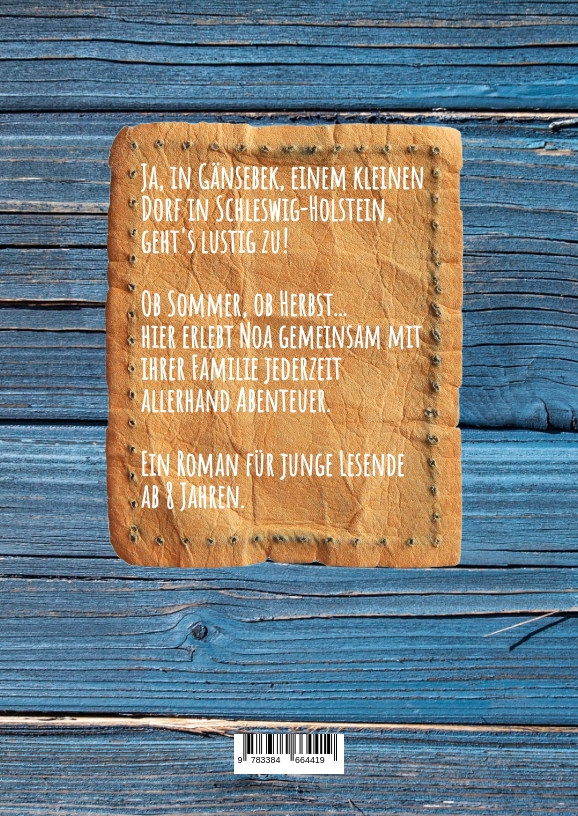 Ja, in Gänsebek, einem kleinen
Dorf in Schleswig-Holstein,
geht's lustig zu!
Ob Sommer, ob Herbst...
hier erlebt Noa gemeinsam mit
ihrer Familie jederzeit
allerhand Abenteuer.
Ein Roman für junge Lesende
ab 8 Jahren.
9 783384 664419